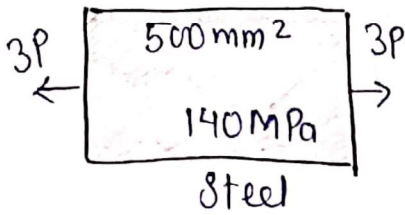 500mm²
3P
3P
140MPa
Steel